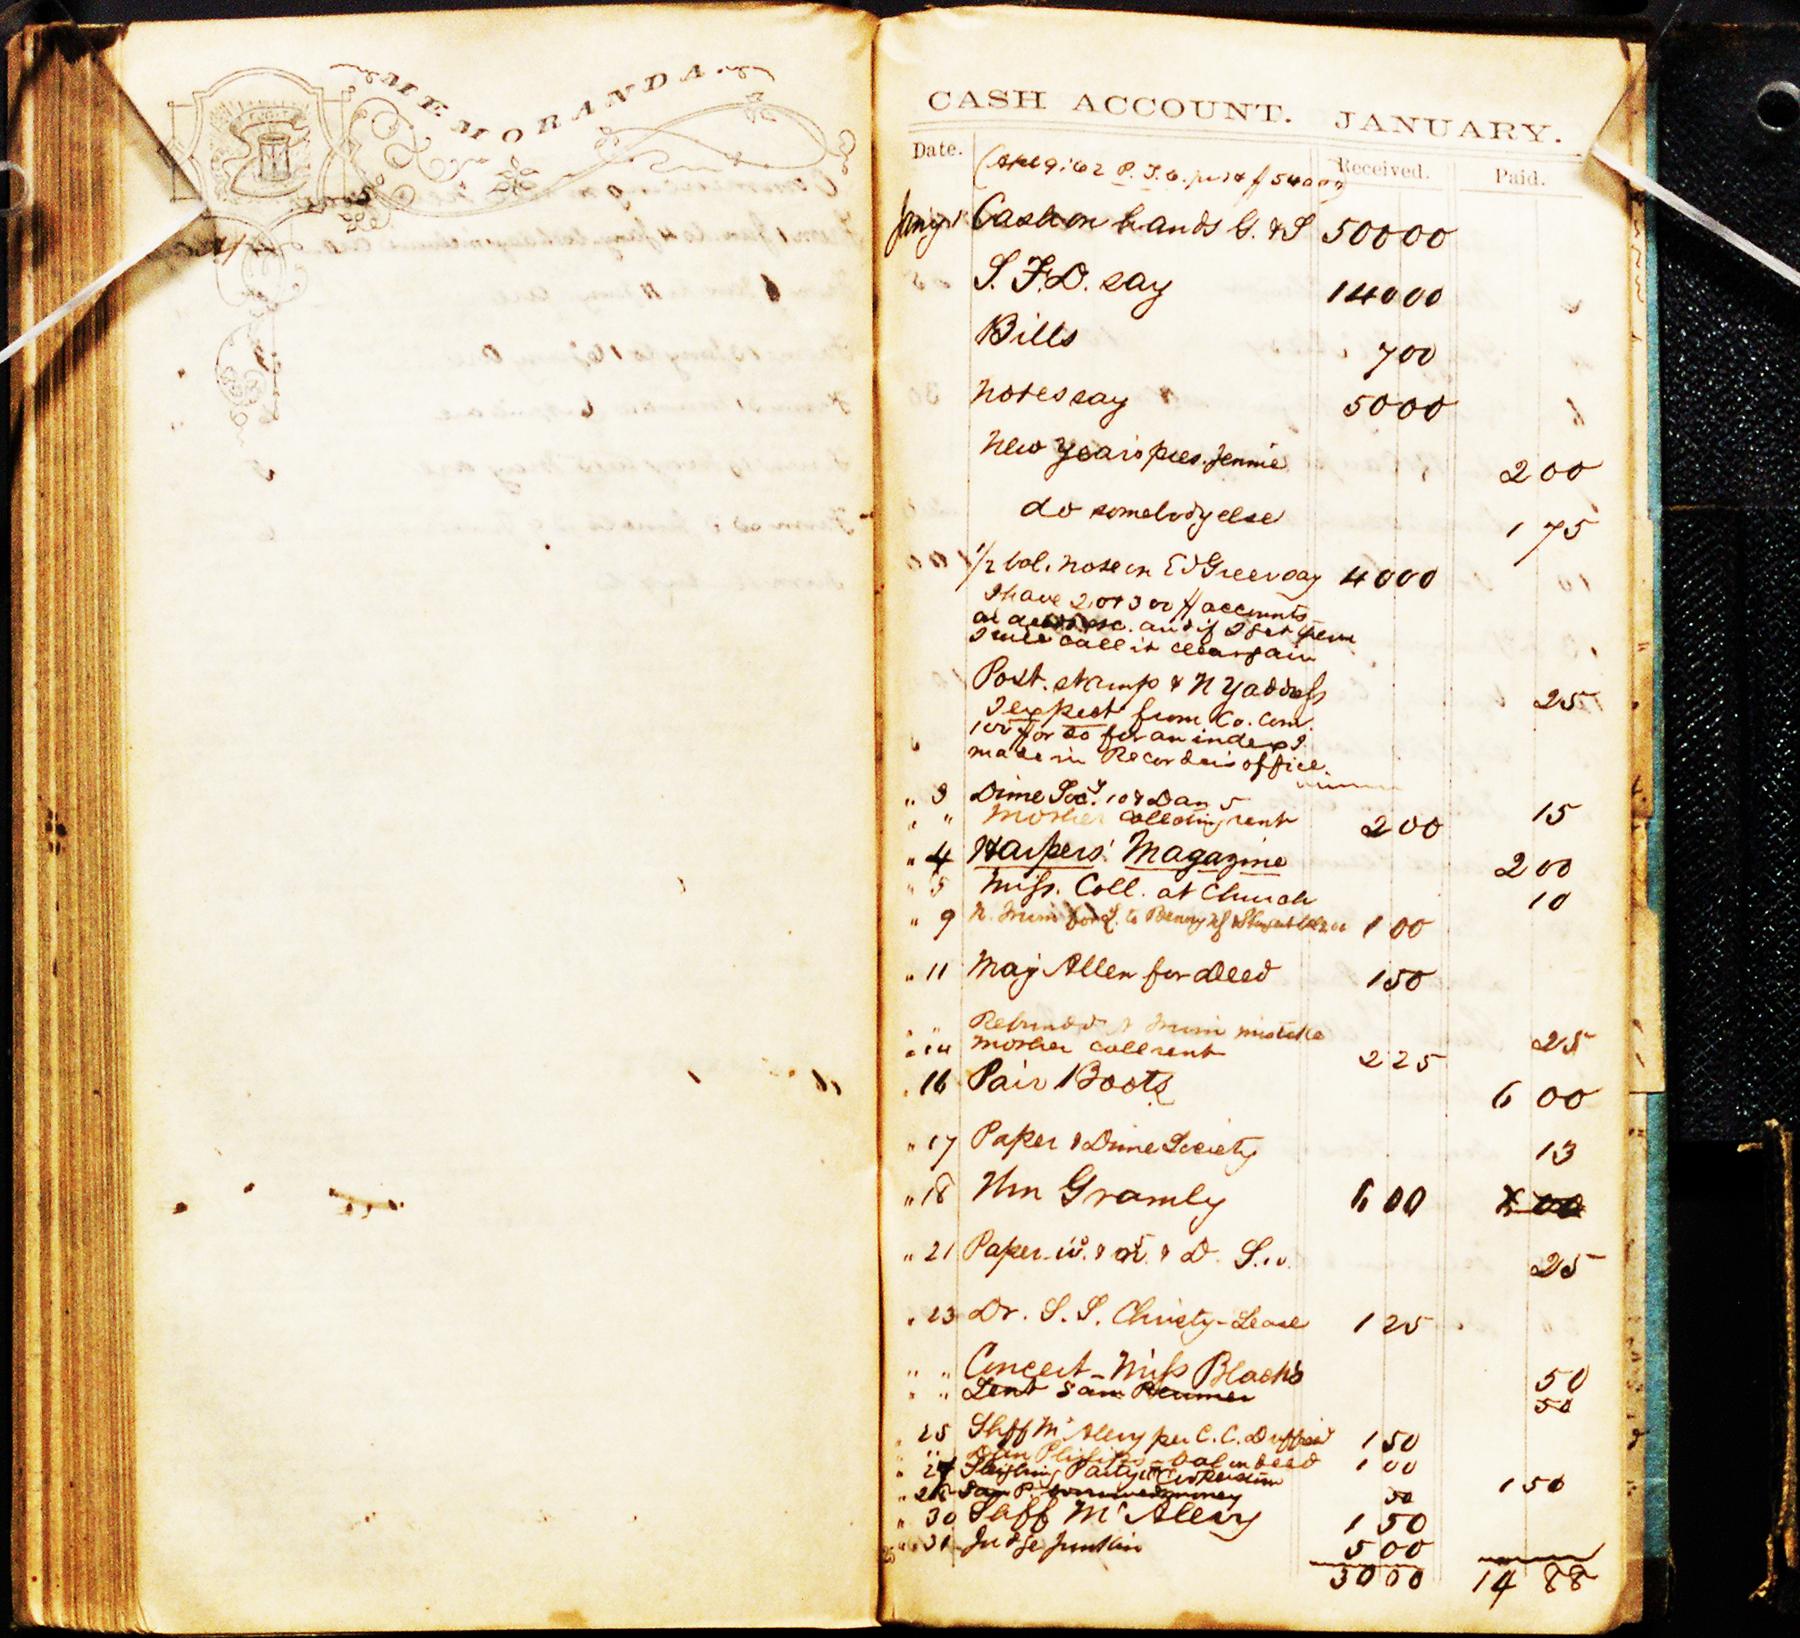 MEMORANDA.
CASH ACCOUNT. JANUARY.
Date. Received. Paid.
Jany 1 Cash on hands G. & S 500 00
S. F. D. say 140 00
Bills 7 00
Notes say 50 00
New Year's pres. Jennie 2 00
do somebody else 1 75
1/2 bal. note on Ed Greer say 40 00
I have 2 or 3 00 $ accounts
and if I get them
I will call it clear gain
Post. stamps & N Y address 25
I expect from Co. Com.
100 $ or so for an index I
made in Recorder's office.
" 3 Dime Soc'y. 10 & Dan 5 15
" " Mother collecting rent 2 00
" 4 Harpers' Magazine 2 00
" 5 Miss. Coll. at Church 10
" 9 1 00
" 11 Maj Allen for deed 1 50
" " mistake 25
" 14 Mother coll rent 2 25
" 16 Pair Boots 6 00
" 17 Paper & Dime Society 13
" 18 Wm Gramly 6 00
" 21 Paper 10. & & D. S. 10. 25
" 23 Dr. S. S. Christy - Lease 1 25
" " Concert - Miss Black's 50
" " Lent Sam 50
" 25 Shff McAlevy per C. C. 1 50
" " bal on deed 1 00
" 27 Sleighing Party 1 50
Sam P. money 50
" 30 Shff McAlevy 1 50
" 31 Judge Junkin 5 00
30 00 14 88